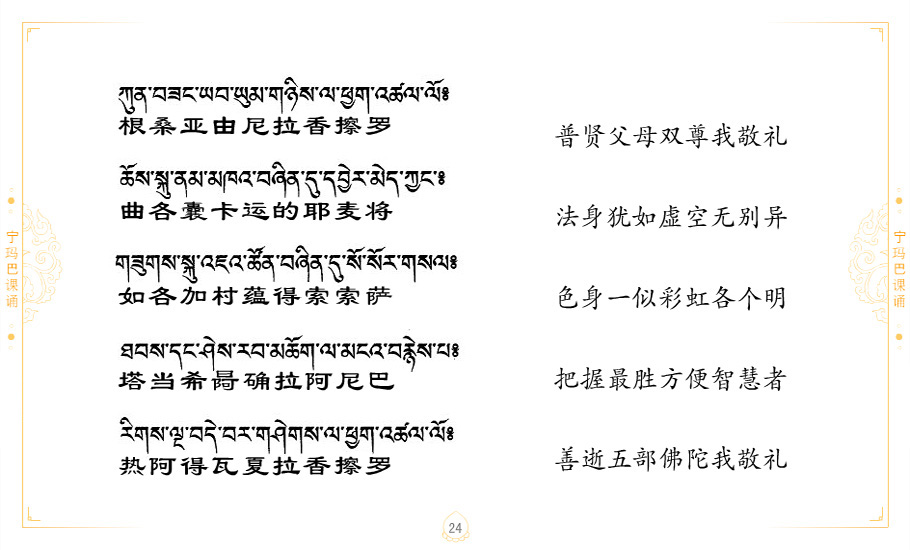 ཀུན་བཟང་ཡབ་ཡུམ་གཉིས་ལ་ཕྱག་འཚལ་ལོ༔
根桑亚由尼拉香擦罗
普贤父母双尊我敬礼
ཆོས་སྐུ་ནམ་མཁའ་བཞིན་དུ་དབྱེར་མེད་ཀྱང་༔
曲各囊卡运的耶麦将
法身犹如虚空无别异
གཟུགས་སྐུ་འཇའ་ཚོན་བཞིན་དུ་སོ་སོར་གསལ༔
如各加村蕴得索索萨
色身一似彩虹各个明
ཐབས་དང་ཤེས་རབ་མཆོག་ལ་མངའ་བརྙེས་པ༔
塔当希䏁确拉阿尼巴
把握最胜方便智慧者
རིགས་ལྔ་བདེ་བར་གཤེགས་ལ་ཕྱག་འཚལ་ལོ༔
热阿得瓦夏拉香擦罗
善逝五部佛陀我敬礼
宁玛巴课诵
宁玛巴课诵
24